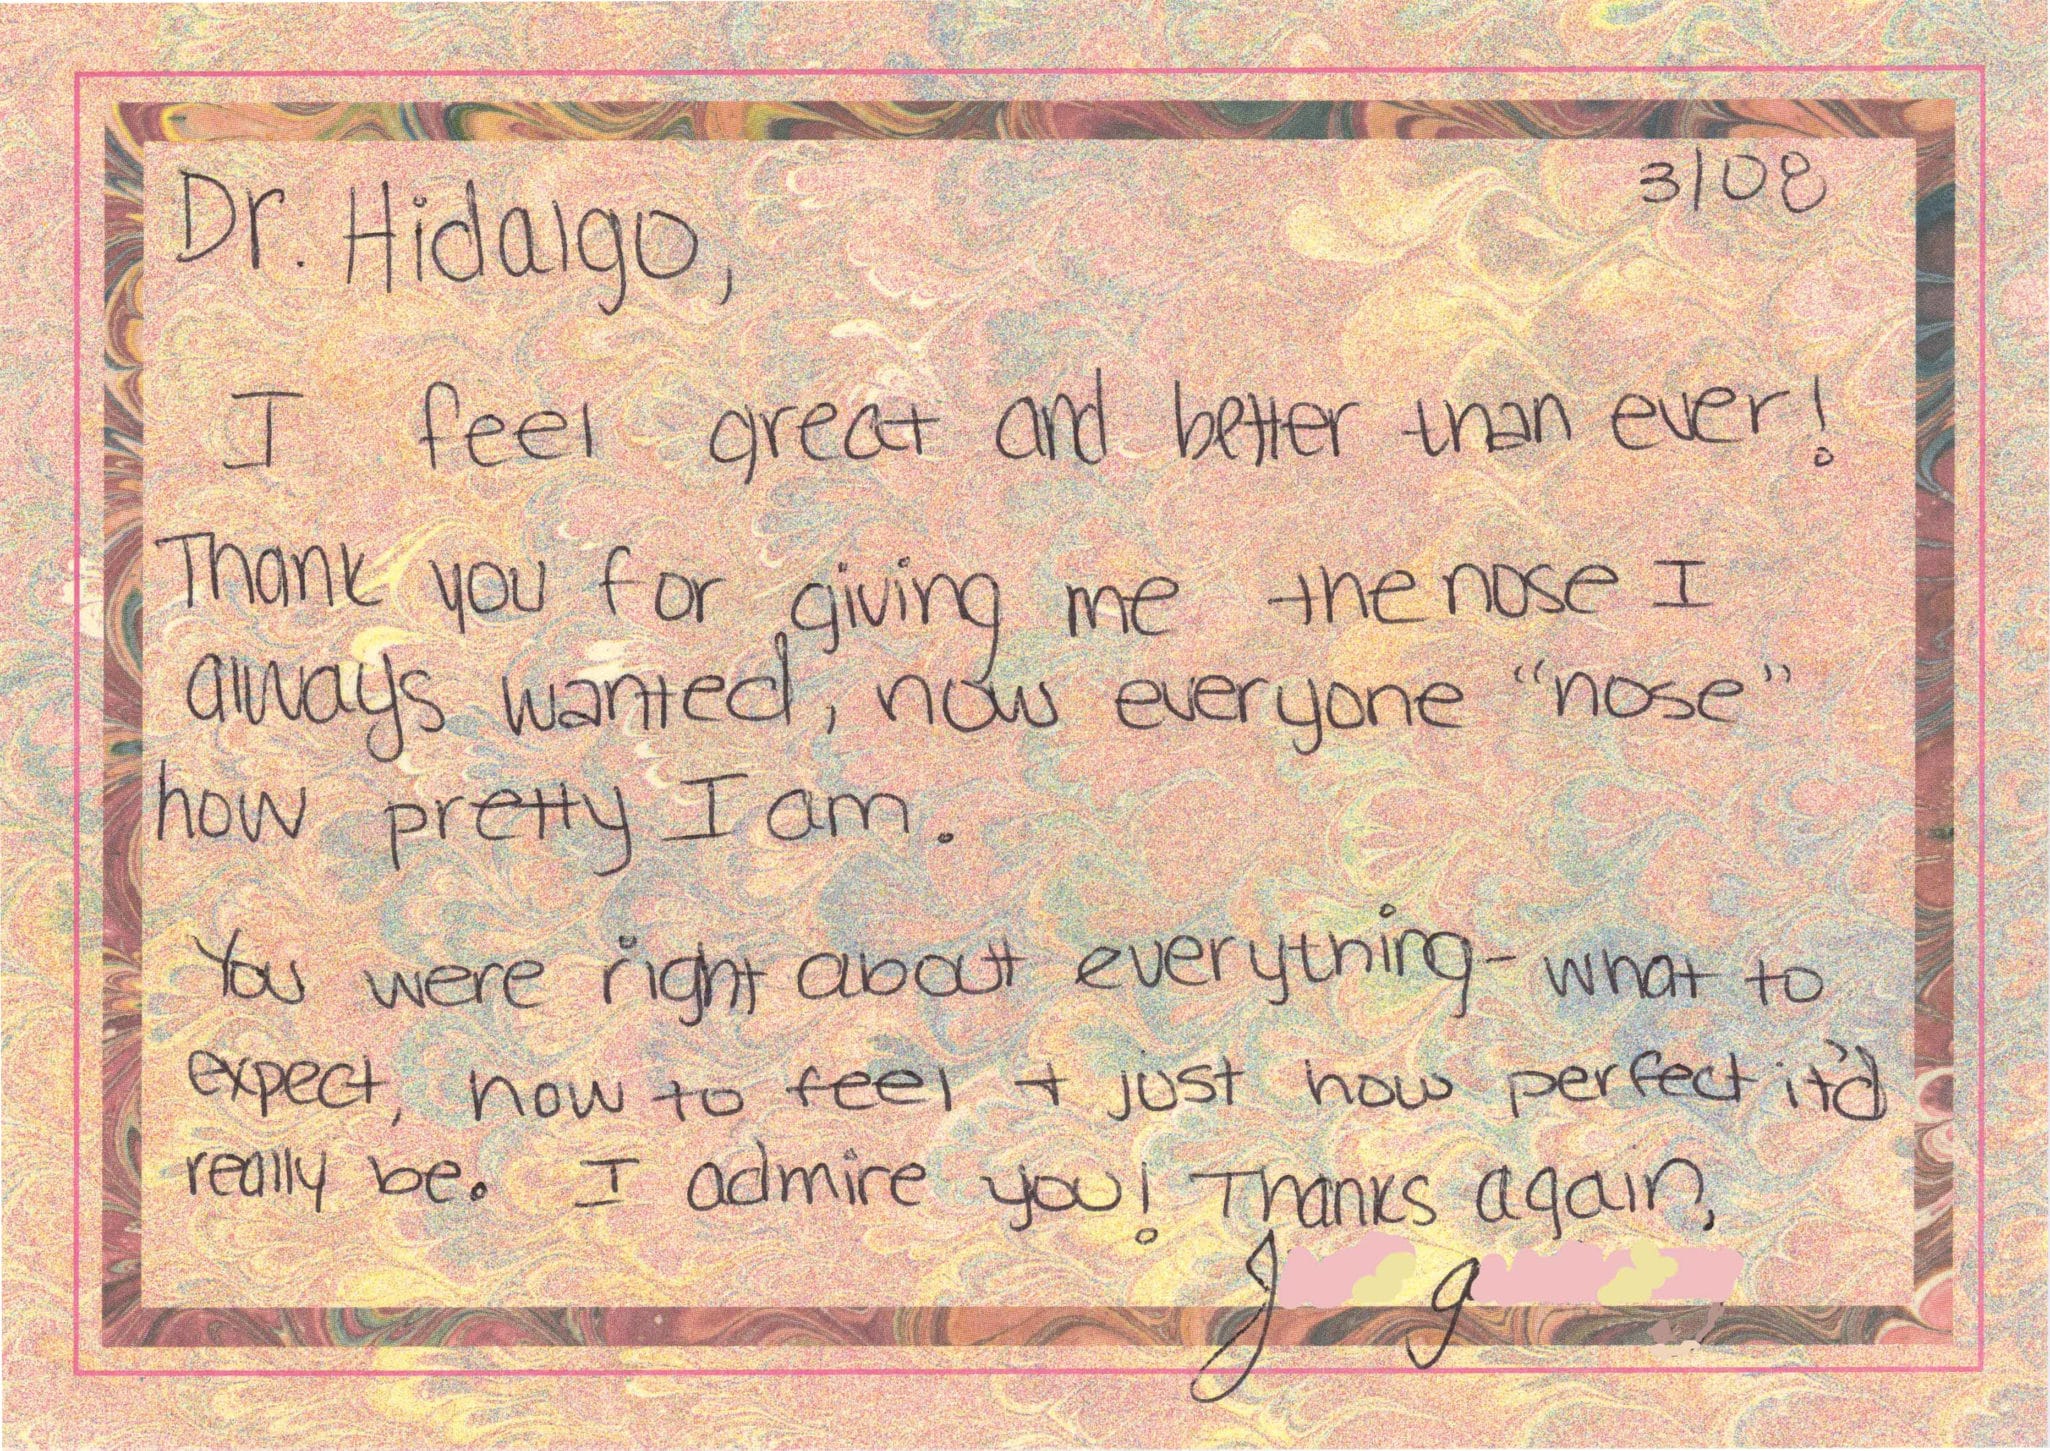 3/08
Dr. Hidalgo,
I feel great and better than ever!
Thank you for giving me the nose I
always wanted, now everyone "nose"
how pretty I am.
You were right about everything - what to
expect, how to feel + just how perfect it'd
really be. I admire you! Thanks again,
J g